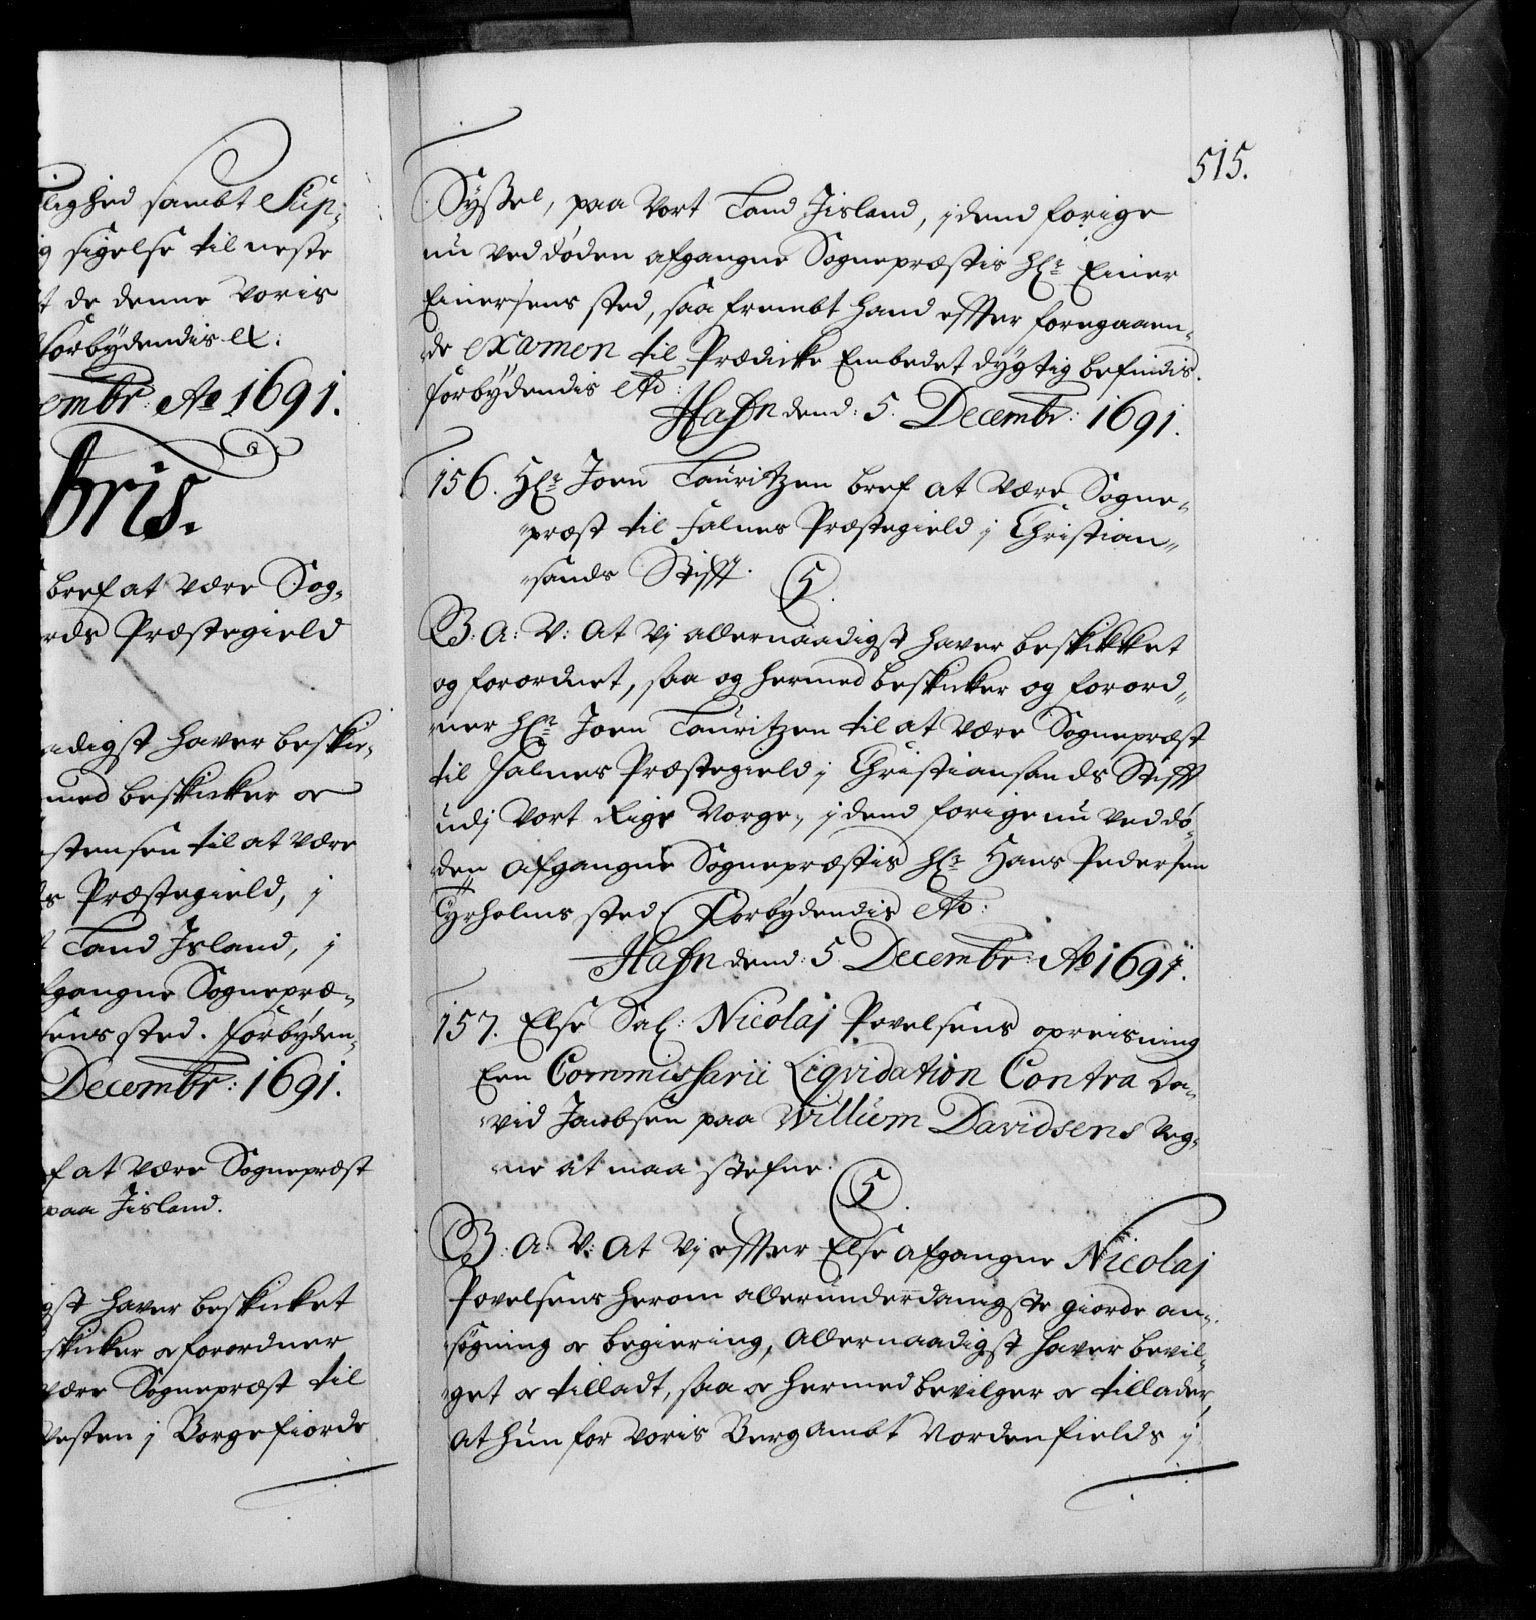 lighed sambt Sup-
g sigelse til neste
t de denne Voris
forbÿdendis etc:
embr: Ao 1691.
bris.
bref at Være Sog-
rds Præstegield
adigst haver beskic-
med beskicker og
stensen til at Være
s Præstegield, i
Land Island, i
fgangne Sognepræ-
sens sted. forbÿden-
Decembr: 1691.
f at Være Sognepræst
paa Jisland.
gst haver beskicket
skicker og forordner
være Sognepræst til
Vesten i Borgefiorde
515.
Sÿssel, paa Vort Land Jisland, i dend forige
nu ved døden afgangne Sognepræstis Hr. Einer
Einersens sted, saa frembt hand effter foregaaen-
de examen til Prædicke Embedet dygtig befindis.
forbÿdendis etc:
Hafn dend: 5. Decembr: 1691.
156. Hr. Joen Lauritzen bref at være Sogne-
præst til Falnes Præstegield i Christian-
sands Stifft.
5.
G: A: V: At Vi allernaadigst haver beskikket
og forordnet, saa og hermed beskicker og forord-
ner Hr. Joen Lauritzen til at være Sognepræst
til Falnes Præstegield i Christiansands Stifft
udj Vort Rige Norge, i dend forige nu ved dø-
den afgangne Sognepræstis Hr. Hans Pedersen
Tyrholms sted, Forbÿdendis etc:
Hafn dend: 5 Decembr: Ao 1691.
157. Else Sal: Nicolaj Povelsens opreisning
Een Commissarii Liqvidation Contra Da-
vid Jacobsen paa Willum Davidsens Veg-
ne at maa stefne.
5.
G: A: V: At Vj effter Else afgangne Nicolaj
Povelsens herom allerunderdanigste giorde an-
søgning og begiering, Allernaadigst haver bevil-
get og tilladt, saa og hermed bevilger og tillader,
At hun for Voris Berg Ambt Nordenfields i